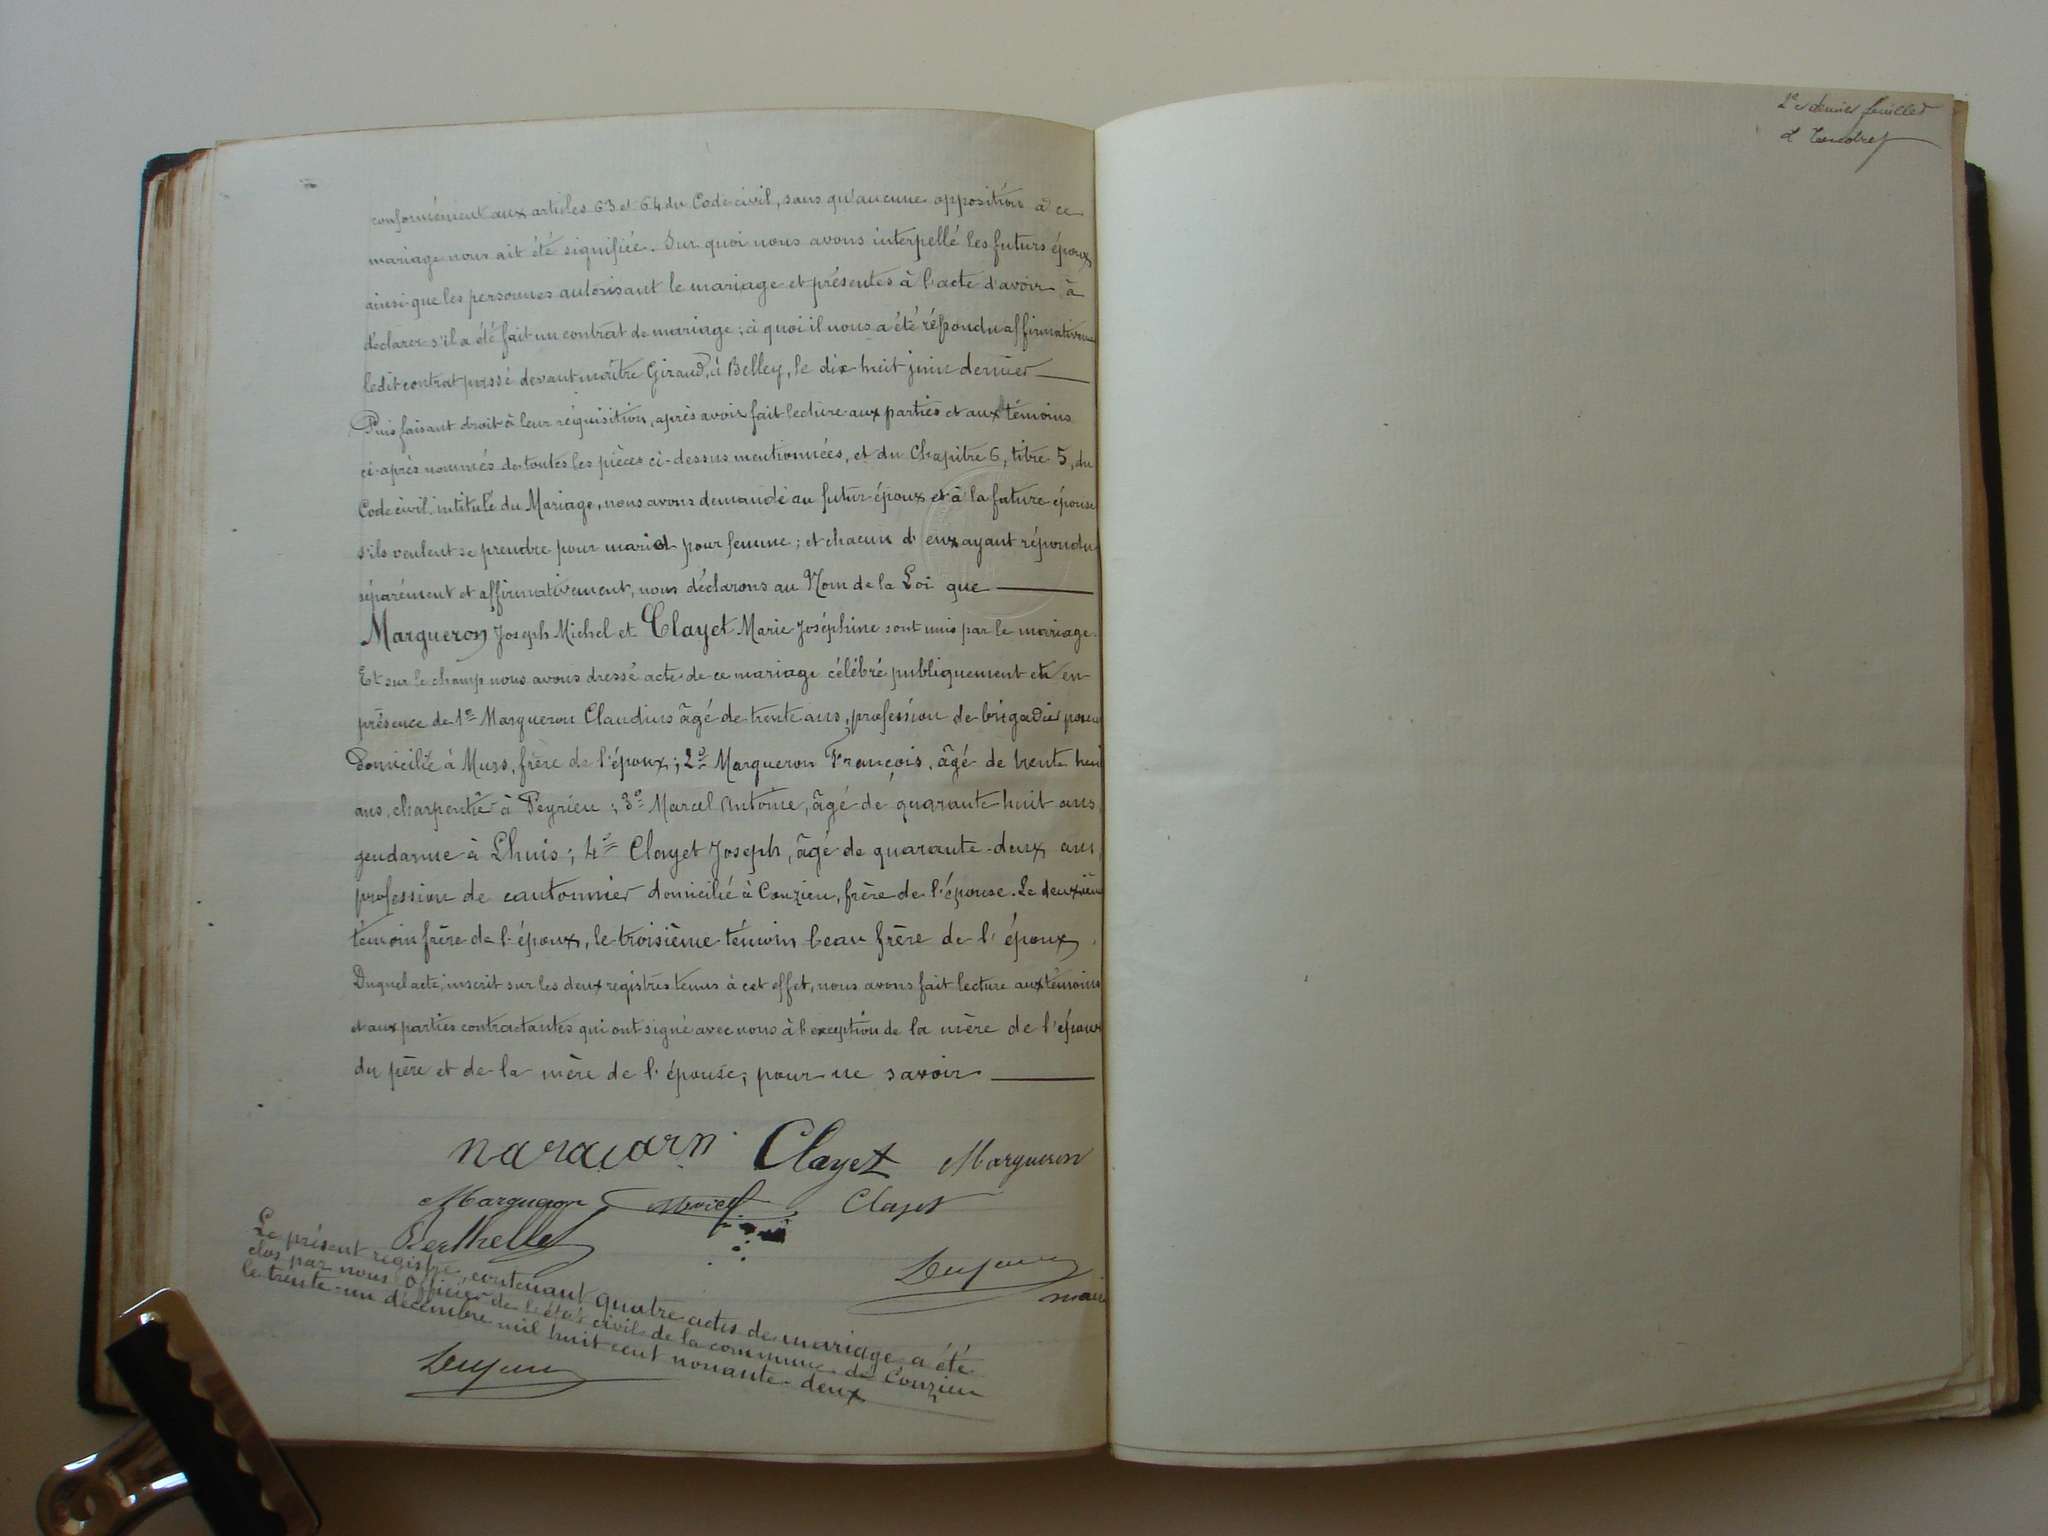 conformément aux articles 63 et 64 du Code civil, sans qu'aucune opposition à ce
mariage nous ait été signifiée. Sur quoi nous avons interpellé les futurs époux
ainsi que les personnes autorisant le mariage et présentes à l'acte d'avoir à
déclarer s'il a été fait un contrat de mariage; à quoi il nous a été répondu affirmativeme
ledit contrat passé devant maître Giraud, à Belley, le dix huit juin dernier
Puis faisant droit à leur réquisition, après avoir fait lecture aux parties et aux témoins
ci-après nommés de toutes les pièces ci-dessus mentionnées, et du Chapitre 6, titre 5, du
Code civil intitulé du Mariage, nous avons demandé au futur époux et à la future épouse
s'ils veulent se prendre pour mari et pour femme; et chacun d'eux ayant répondu
séparément et affirmativement, nous déclarons au Nom de la Loi que
Margueron Joseph Michel et Clayet Marie Joséphine sont unis par le mariage.
Et sur le champ nous avons dressé acte de ce mariage célébré publiquement et en
présence de 1º Margueron Claudius âgé de trente ans, profession de brigadier
domicilié à Murs, frère de l'époux; 2º Margueron François, âgé de trente huit
ans, charpentier à Peyrieu; 3º Marcel Antoine, âgé de quarante huit ans,
gendarme à Lhuis; 4º Clayet Joseph, âgé de quarante-deux ans,
profession de cantonnier domicilié à Conzieu, frère de l'épouse. Le deuxième
témoin frère de l'époux, le troisième témoin beau frère de l'époux,
Duquel acte, inscrit sur les deux registres tenus à cet effet, nous avons fait lecture aux témoins
et aux parties contractantes qui ont signé avec nous à l'exception de la mère de l'époux
du père et de la mère de l'épouse; pour ne savoir
Clayet Margueron
Margueron Clayet
Berthelle
maire
Le présent registre, contenant quatre actes de mariage a été
clos par nous Officier de l'état civil de la commune de Conzieu
le trente-un décembre mil huit cent nonante-deux
2e et dernier feuillet